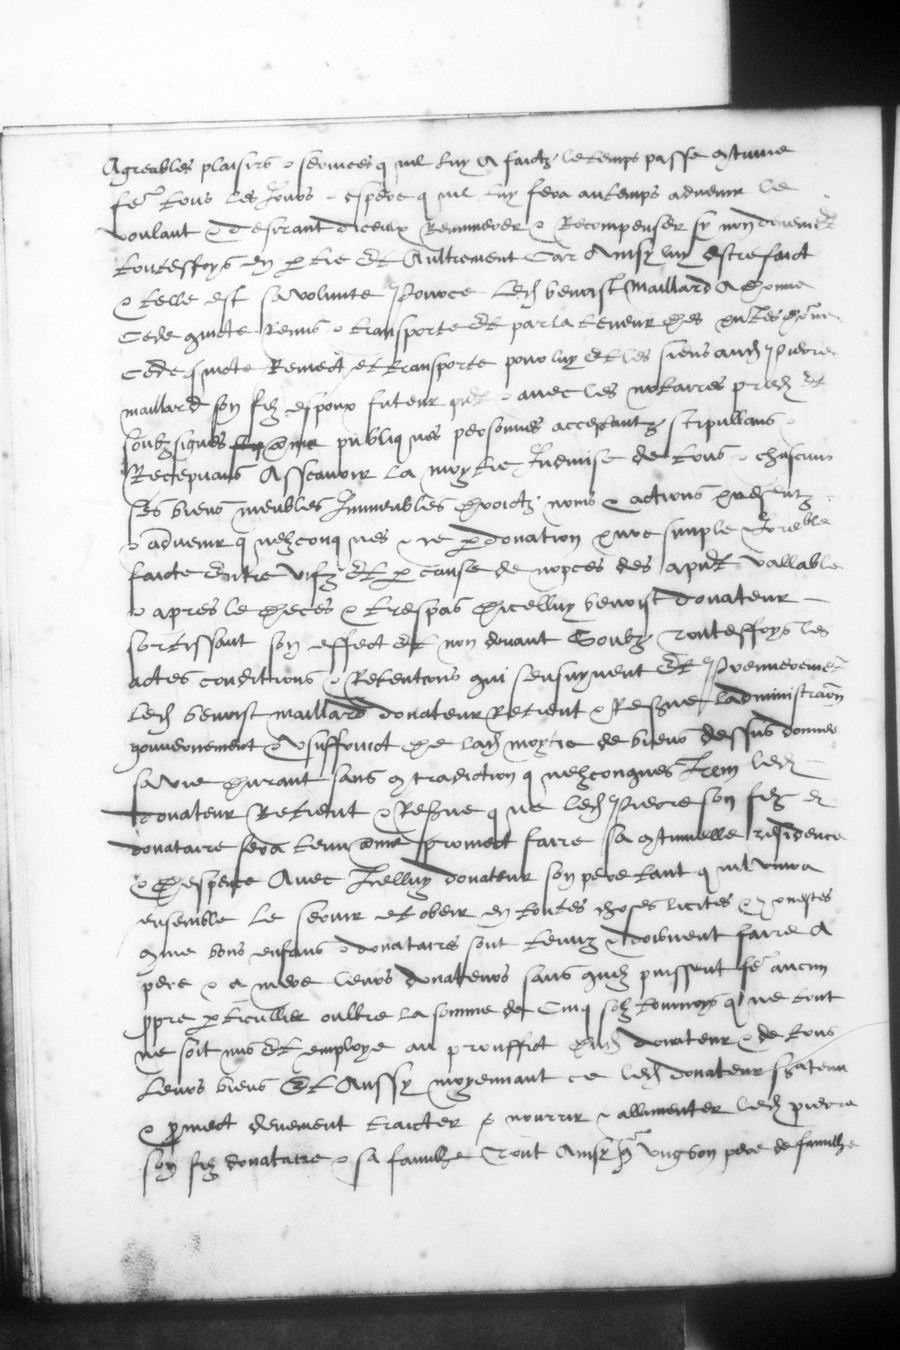 Agreables plaisirs & services q uil luy a faictz le temps passe continue
fe^r tous les Jours & espere q uil luy fera au temps advenir le
voulant & desirant diceulx Remunerer & Recompenser sy non deuement
touteffoys en p tie Et Aultrement Car Ainsy luy estre faict
& telle est sa volunte / Pource led benoist Maillard A donne
Cede quicte Remis & transporte Et par la teneur des pntes donne
Cede quicte Remect et transporte pour luy Et les siens aud Pierre
maillard son filz espoux futeur pnt & avec les notaires pred Et
soubzsignes comme publiq ues personnes acceptantz stipullans &
Recepvans Asscavoir la moytie Indivise de tous & chascuns
Ses biens meubles Immeubles droictz noms & actions presentz
& advenir q uelzconq ues & ce p donation pure simple Irrevocable
faicte Entre vifz Et p cause de nopces des apnt vallable
& apres le deces & trespas dicelluy benoist donateur
sortissant son effect Et non devant Soubz touteffoys les
actes conditions & Retentions qui sensuyvent Et Premierement
led benoist maillard donateur Retient & Reserve ladministration
gouvernement & Usuffruict de lad moytie de biens dessus donnee
sa vie durant sans contradiction q uelzconques Item led
donateur Retient & Reserve q ue led Pierre son filz &
donataire sera tenu comme promect faire sa continuelle residence
& despence Avec Icelluy donateur son pere tant q uil vivra
ensemble le servir et obeir en toutes choses licites & honestes
come bons enfans & donataires sont tenuz & doibvent faire A
pere & a mere leurs donateurs sans quilz puissent fe^r aucun
ppre p ticullier oultre la somme de Cinq solz tournoys q ue tout
ne soit mis Et employe au prouffict dud donateur & de tous
leurs biens Et Aussy moyennant ce led donateur sera tenu
& pmect deuement traicter & nourrir & allimenter led pierre
son filz donataire & sa famille Tout Ainsy q ung bon pere de famille